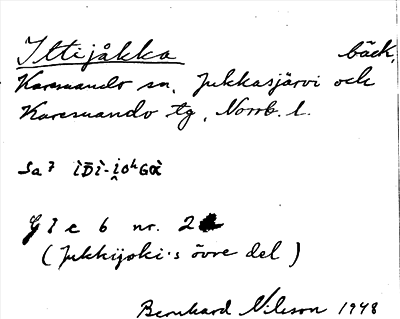 Ittijåkka bäck,
Karesuando sn, Jukkasjärvi och
Karesuando tg, Norrb. l.
Sa 7
G l e 6 nr. 2
(Jukkijoki's övre del)
Bernhard Nilsson 1948